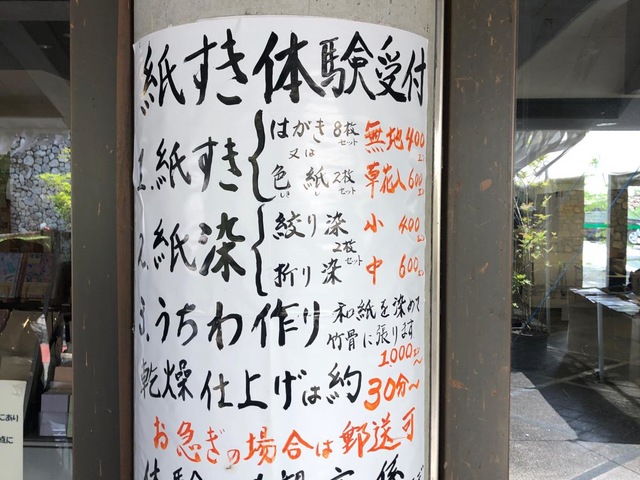 紙すき体験受付
1.紙すき
はがき8枚セット 無地400エン
又は
色紙2枚セット 草花入600エン
しきし
2.紙染
絞り染 小 400エン
2枚セット
折り染 中 600エン
3.うちわ作り
和紙を染めて
竹骨に張ります
1,000エン〜
乾燥仕上げは約30分〜
お急ぎの場合は郵送可
にあり
点に